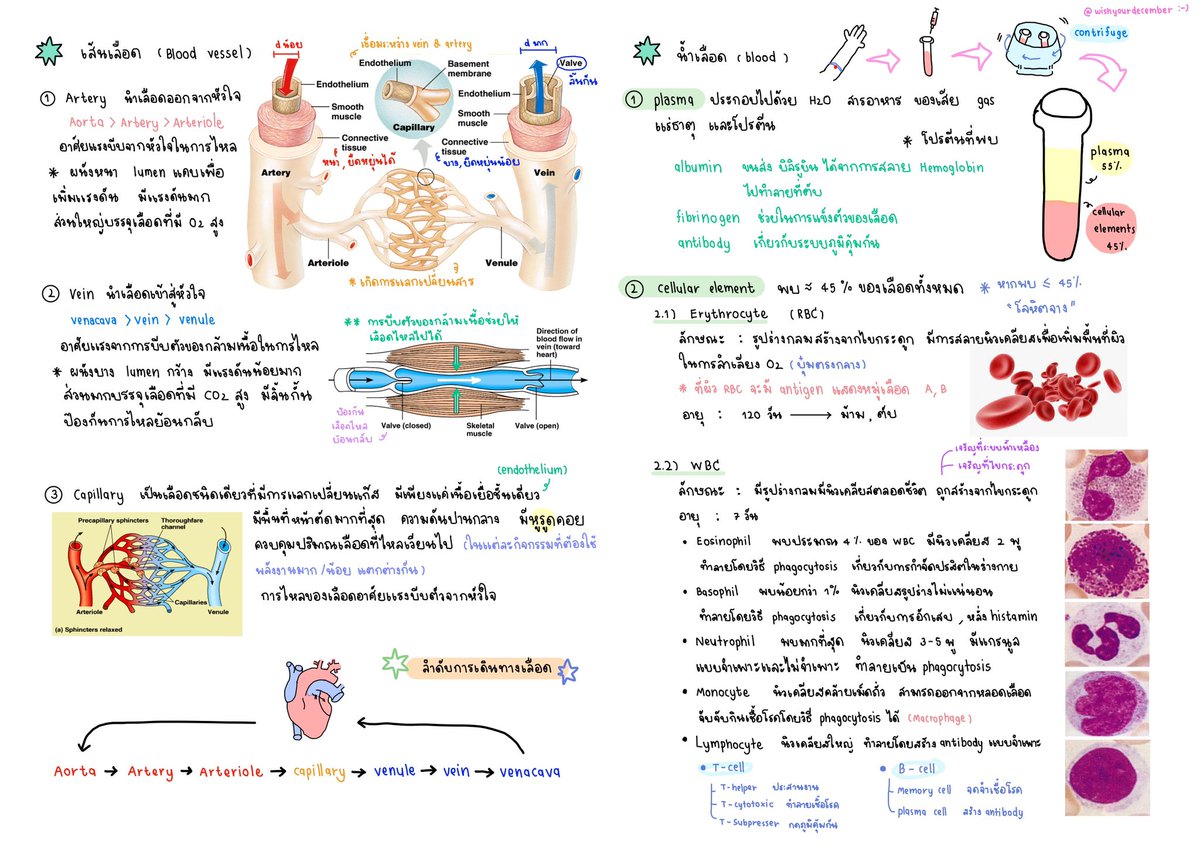 @wishyourdecember :-)
เส้นเลือด (Blood vessel)
① Artery นำเลือดออกจากหัวใจ
Aorta > Artery > Arteriole
อาศัยแรงบีบจากหัวใจในการไหล
* ผนังหนา lumen แคบเพื่อ
เพิ่มแรงดัน มีแรงดันมาก
ส่วนใหญ่บรรจุเลือดที่มี O2 สูง
d น้อย
เชื่อมระหว่าง vein & artery
d มาก
Valve
ลิ้นกั้น
Endothelium
Basement
membrane
Endothelium
Endothelium
Smooth
muscle
Smooth
muscle
Capillary
Connective
tissue
Connective
tissue
หนา, ยืดหยุ่นได้
บาง, ยืดหยุ่นน้อย
Artery
Vein
Arteriole
Venule
* เกิดการแลกเปลี่ยนสาร
② Vein นำเลือดเข้าสู่หัวใจ
venacava > vein > venule
อาศัยแรงจากการบีบตัวของกล้ามเนื้อในการไหล
* ผนังบาง lumen กว้าง มีแรงดันน้อยมาก
ส่วนมากบรรจุเลือดที่มี CO2 สูง มีลิ้นกั้น
ป้องกันการไหลย้อนกลับ
** การบีบตัวของกล้ามเนื้อช่วยให้
เลือดไหลไปได้
Direction of
blood flow in
vein (toward
heart)
ป้องกัน
เลือดไหล
ย้อนกลับ
Valve (closed)
Skeletal
muscle
Valve (open)
(endothelium)
③ Capillary เป็นเลือดชนิดเดียวที่มีการแลกเปลี่ยนแก๊ส มีเพียงแค่เนื้อเยื่อชั้นเดียว
มีพื้นที่หน้าตัดมากที่สุด ความดันปานกลาง มีหูรูดคอย
ควบคุมปริมาณเลือดที่ไหลเวียนไป (ในแต่ละกิจกรรมที่ต้องใช้
พลังงานมาก/น้อย แตกต่างกัน)
การไหลของเลือดอาศัยแรงบีบตัวจากหัวใจ
Precapillary sphincters
Thoroughfare
channel
Capillaries
Arteriole
Venule
(a) Sphincters relaxed
ลำดับการเดินทางเลือด
Aorta → Artery → Arteriole → capillary → venule → vein → venacava
น้ำเลือด (blood)
contrifuge
① plasma ประกอบไปด้วย H2O สารอาหาร ของเสีย gas
แร่ธาตุ และโปรตีน
* โปรตีนที่พบ
albumin ขนส่ง บิลิรูบิน ได้จากการสลาย Hemoglobin
ไปทำลายที่ตับ
fibrinogen ช่วยในการแข็งตัวของเลือด
antibody เกี่ยวกับระบบภูมิคุ้มกัน
plasma
55%
cellular
elements
45%
② cellular element พบ ≈ 45 % ของเลือดทั้งหมด
* หากพบ ≤ 45%
"โลหิตจาง"
2.1) Erythrocyte (RBC)
ลักษณะ : รูปร่างกลมสร้างจากไขกระดูก มีการสลายนิวเคลียสเพื่อเพิ่มพื้นที่ผิว
ในการลำเลียง O2 (บุ๋มตรงกลาง)
* ที่ผิว RBC จะมี antigen แสดงหมู่เลือด A, B
อายุ : 120 วัน → ม้าม, ตับ
2.2) WBC
เจริญที่ระบบน้ำเหลือง
เจริญที่ไขกระดูก
ลักษณะ : มีรูปร่างกลมมีนิวเคลียสตลอดชีวิต ถูกสร้างจากไขกระดูก
อายุ : 7 วัน
• Eosinophil พบประมาณ 4% ของ WBC มีนิวเคลียส 2 พู
ทำลายโดยวิธี phagocytosis เกี่ยวกับการกำจัดปรสิตในร่างกาย
• Basophil พบน้อยกว่า 1% นิวเคลียสรูปร่างไม่แน่นอน
ทำลายโดยวิธี phagocytosis เกี่ยวกับการอักเสบ, หลั่ง histamin
• Neutrophil พบมากที่สุด นิวเคลียส 3-5 พู มีแกรนูล
แบบจำเพาะและไม่จำเพาะ ทำลายเป็น phagocytosis
• Monocyte นิวเคลียสคล้ายเม็ดถั่ว สามารถออกจากหลอดเลือด
จับจับกินเชื้อโรคโดยวิธี phagocytosis ได้ (Macrophage)
• Lymphocyte นิวเคลียสใหญ่ ทำลายโดยสร้าง antibody แบบจำเพาะ
• T-cell
T-helper ประสานงาน
T-cytotoxic ทำลายเชื้อโรค
T-Subpresser กดภูมิคุ้มกัน
• B-cell
Memory cell จดจำเชื้อโรค
plasma cell สร้าง antibody